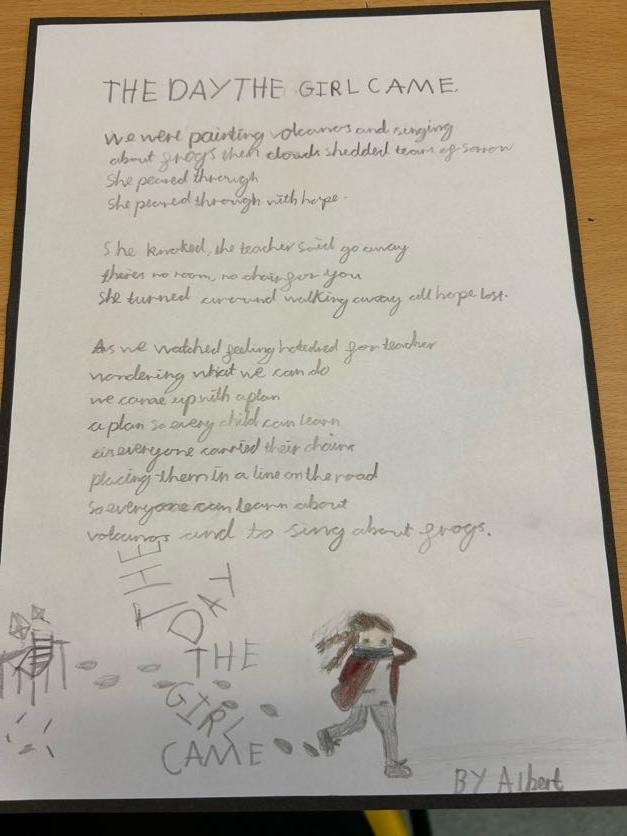 THE DAY THE GIRL CAME.
we were painting volcanos and singing
about frogs then clouds shedded tears of sorrow
She peared through
She peared through with hope.
She knoked, the teacher said go away
theres no room, no chair for you
She turned around walking away all hope lost.
As we watched feeling hatedred for teacher
wondering what we can do
we came up with a plan
a plan so every child can learn
everyone carried their chairs
placing them in a line on the road
so everyone can learn about
volcanos and to sing about frogs.
THE
DAY
THE
GIRL
CAME
BY Albert